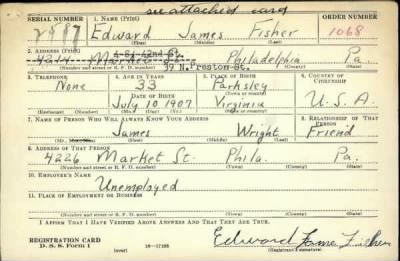 see attached card
SERIAL NUMBER 1. NAME (Print) ORDER NUMBER
Edward James Fisher 1068
(First) (Middle) (Last)
2. ADDRESS (Print)
4214 Market St. Philadelphia Pa.
39 N. Preston St.
(Number and street or R. F. D. number) (Town) (County) (State)
3. TELEPHONE 4. AGE IN YEARS 5. PLACE OF BIRTH 6. COUNTRY OF CITIZENSHIP
None 33 Parksley
DATE OF BIRTH (Town or county)
July 10 1907 Virginia U.S.A.
(Exchange) (Number) (Mo.) (Day) (Yr.) (State or country)
7. NAME OF PERSON WHO WILL ALWAYS KNOW YOUR ADDRESS 8. RELATIONSHIP OF THAT PERSON
James Wright Friend
(Mr., Mrs., Miss) (First) (Middle) (Last)
9. ADDRESS OF THAT PERSON
4226 Market St. Phila. Pa.
(Number and street or R. F. D. number) (Town) (County) (State)
10. EMPLOYER'S NAME
Unemployed
11. PLACE OF EMPLOYMENT OR BUSINESS
(Number and street or R. F. D. number) (Town) (County) (State)
I AFFIRM THAT I HAVE VERIFIED ABOVE ANSWERS AND THAT THEY ARE TRUE.
REGISTRATION CARD
D. S. S. Form 1 (over) 16—17105
Edward James Fisher
(Registrant's signature)